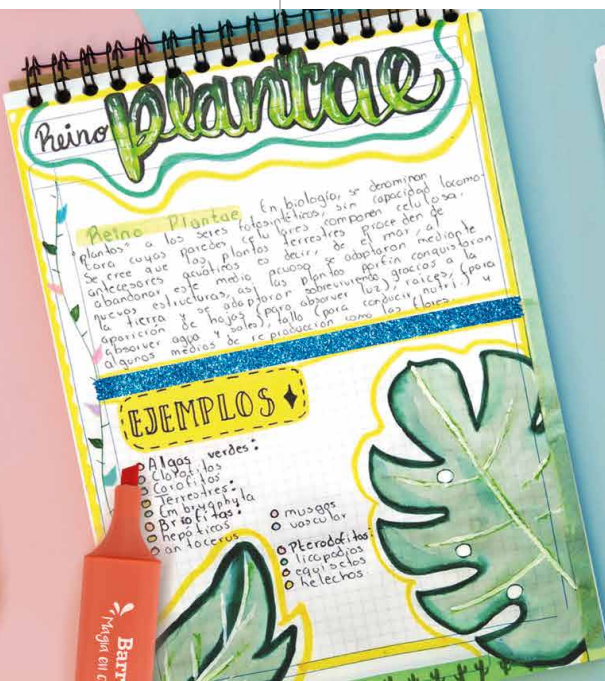 Reino plantae
Reino Plantae En biología, se denominan
plantas" a los seres fotosintéticos, sin capacidad locomo-
tora cuyas paredes celulares componen celulosa.
Se cree que las plantas terrestres proceden de
antecesores acuáticos es decir, de el mar, al
abandonar este medio acuoso se adaptaron mediante
nuevas estructuras, así las plantas porfin conquistaron
la tierra y se adaptaron sobreviviendo gracias a la
aparición de hojas (para absorver luz), raíces, (para
absorver agua y sales), tallo (para conducir nutri.) y
algunos medios de reproducción como las flores.
EJEMPLOS
Algas verdes:
Clorofitas
Carofitas
Terrestres:
Embryophyta
Briofitas:
hepáticas
antocerus
musgos
vascular
Pterodofitas:
licapodios
equisetos
helechos
Barr
Magia en c